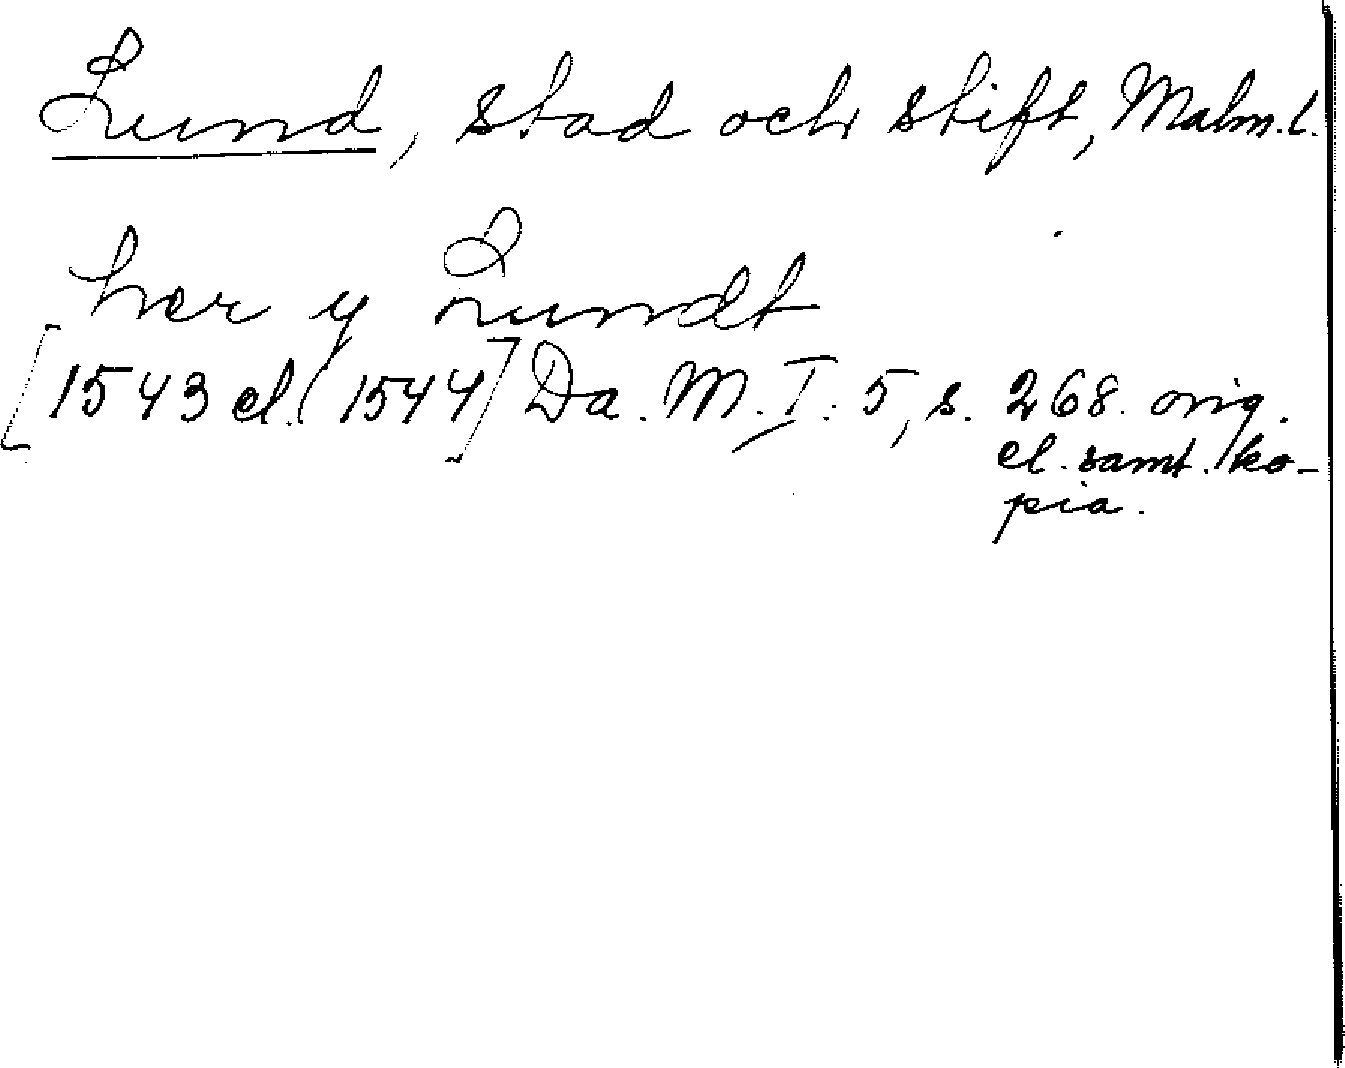 Lund, stad och stift, Malm.l.
her y Lundt
[1543 el. 1544] Da. M. I: 5, s. 268. orig.
el. samt. ko-
pia.